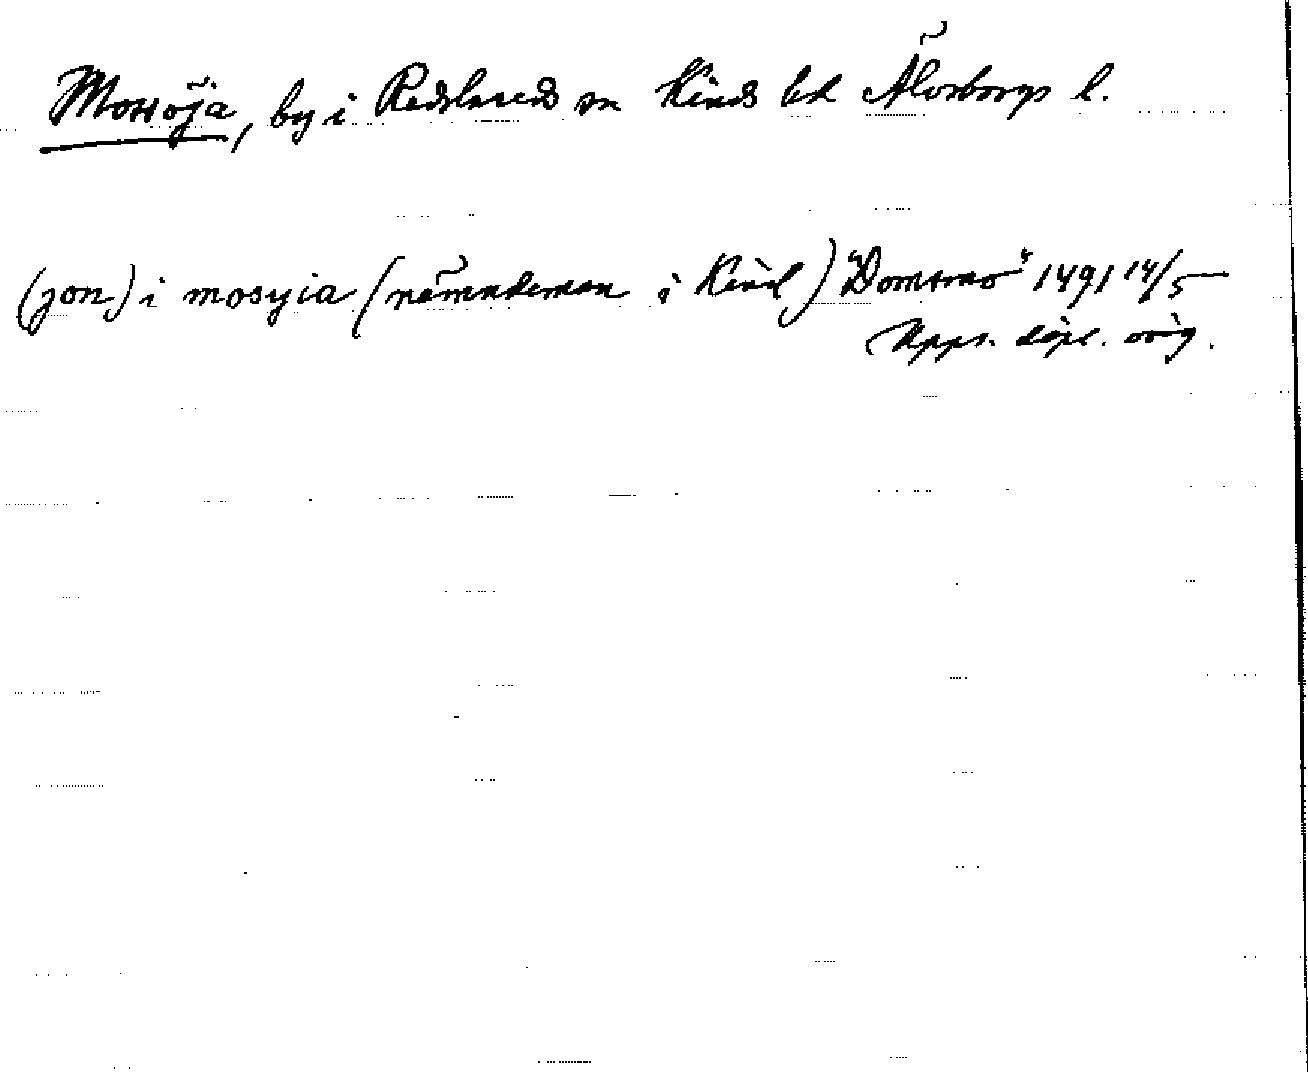 Mossöja, by i Redslareds sn Kinds hd Älvsborgs l.
(jon) i mosyia (nämndeman i Kind) Domsmo 1491 14/5
Upps. dipl. orig.